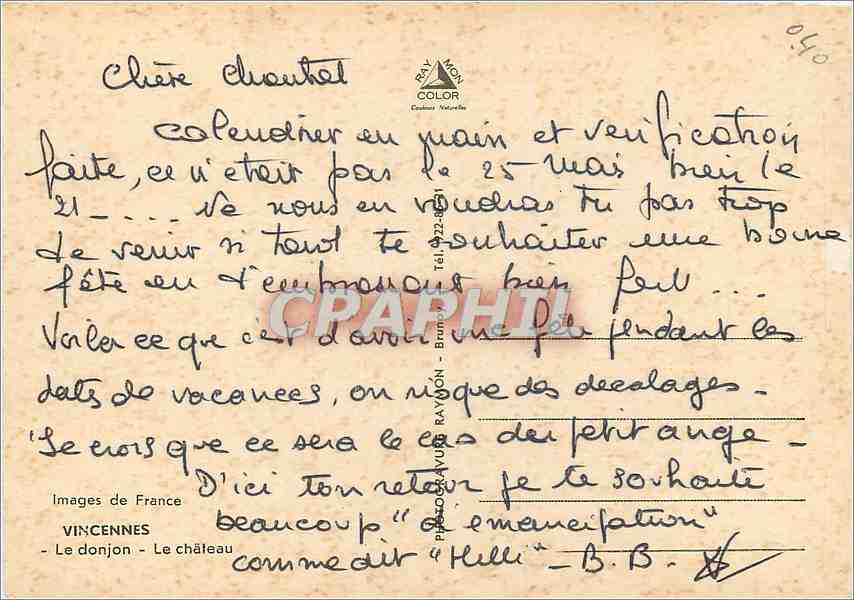 0.40
RAY MON
COLOR
Couleurs Naturelles
Chère Chantal
Calendrier en main et verification
faite, ce n'etait pas le 25 mais bien le
21 - . . . Ne nous en voudras tu pas trop
de venir si tard te souhaiter une bonne
fête en t'embrassant bien fort ...
Voila ce que c'est d'avoir une fête pendant les
dates de vacances, on risque des decalages -
Je crois que ce sera le cas du petit ange -
D'ici ton retour je te souhaite
beaucoup "d'emancipation"
comme dit "Helli" - B. B.
Images de France
VINCENNES
- Le donjon - Le château
PHOTOGRAVURE RAYMON - Brunoy Tél. 922-
CPARHIL